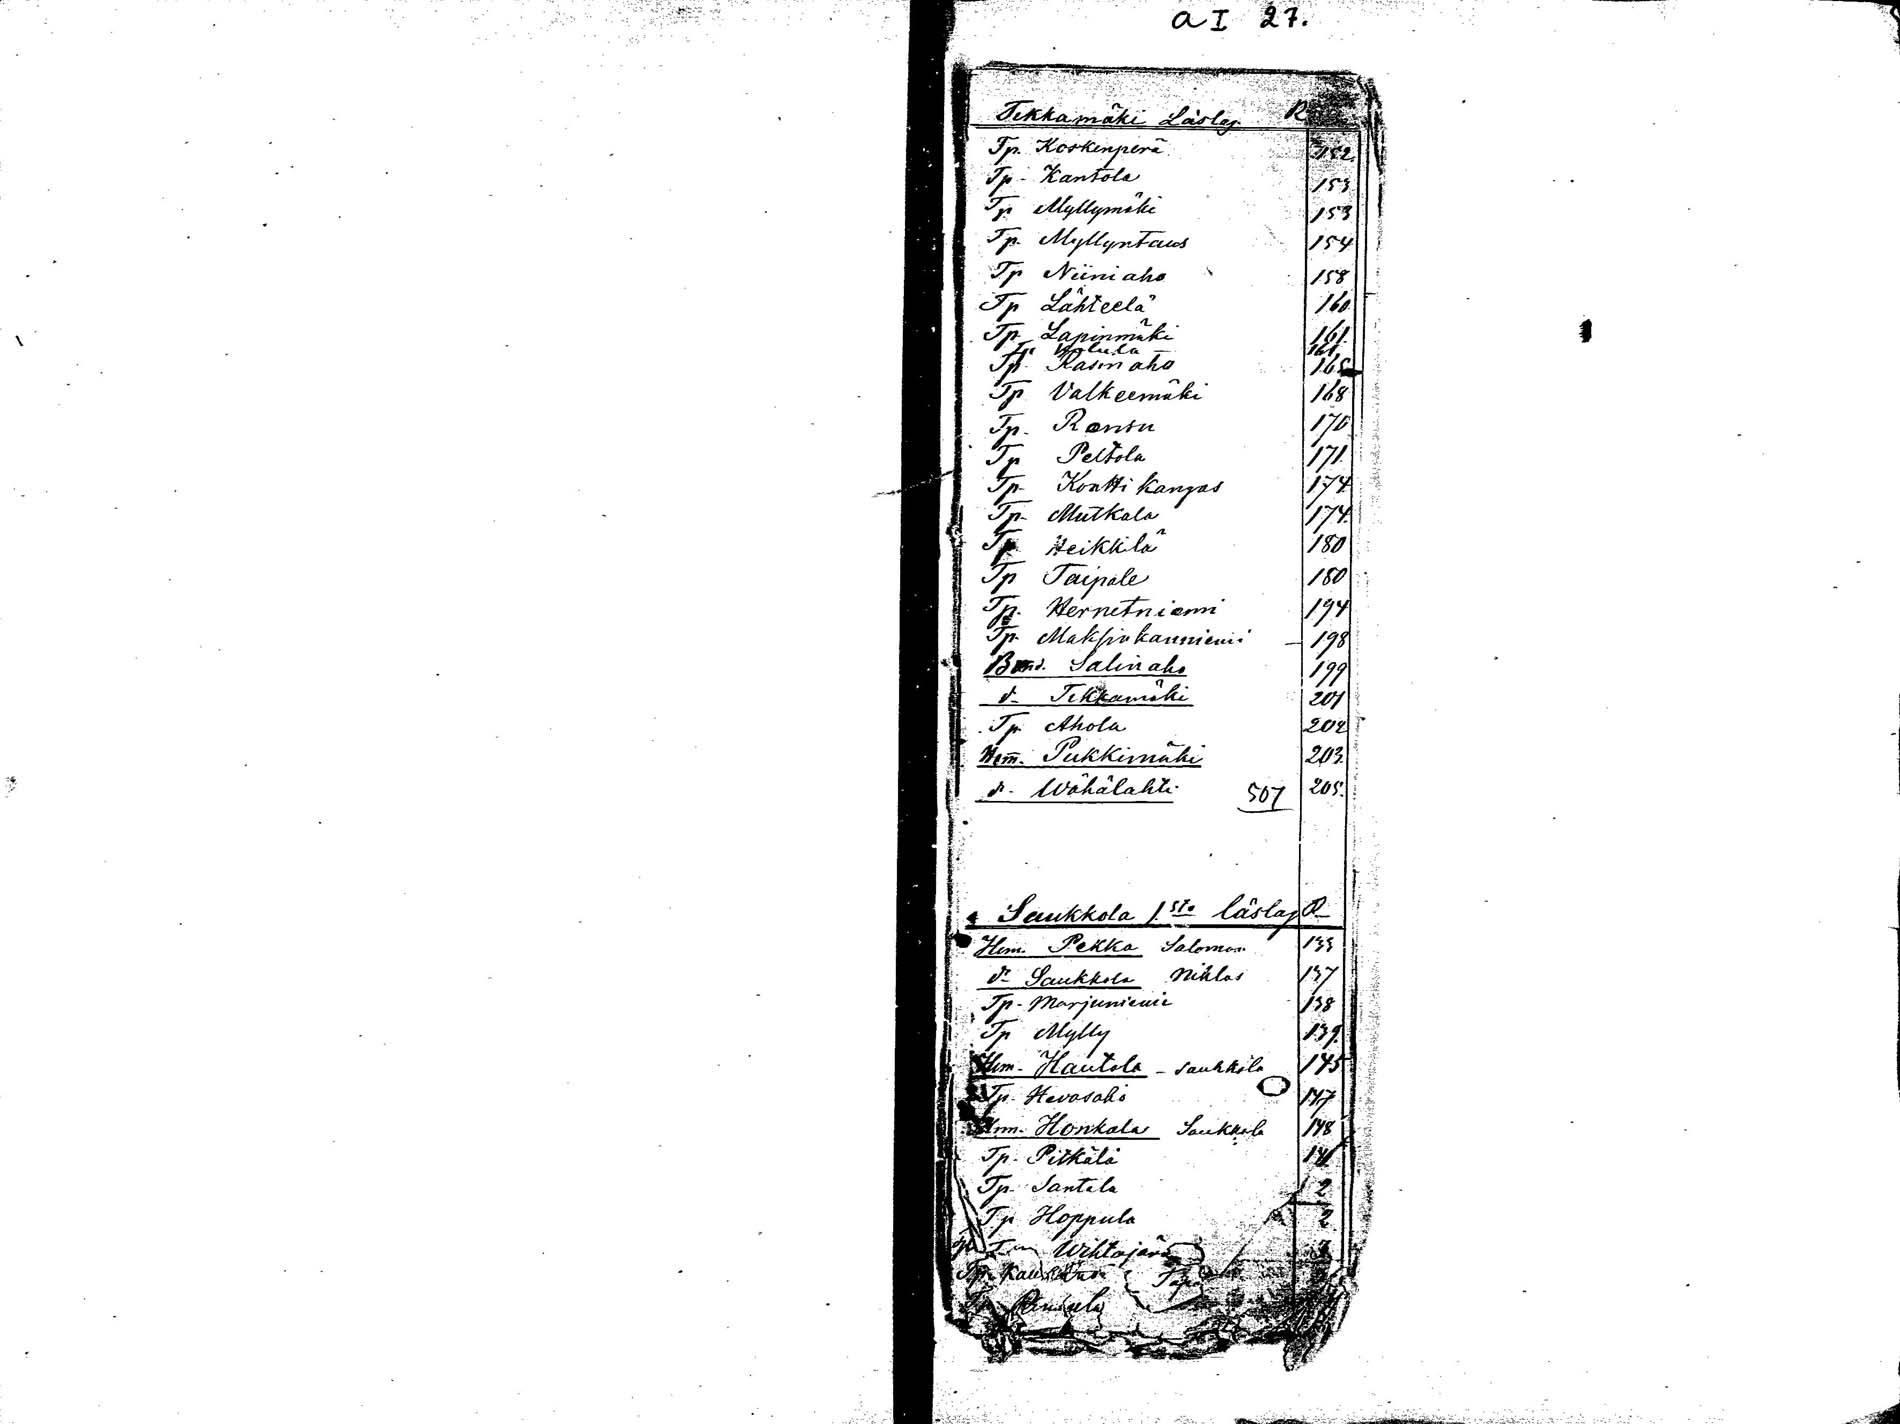 a I 27.
Tikkamäki Läslag R
Tp. Koskenperä 152.
Tp. Kantola 153
Tp Myllymäki 153
Tp. Myllyntaus 154
Tp Niiniaho 158
Tp Lähteelä 160
Tp. Lapinmäki 161.
Tp. 161
Tp. Kasinaho 165
Tp Valkeemäki 168
Tp. Ransu 170
Tp Peltola 171
Tp. Konttikangas 174
Tp. Mutkala 174
Tp. Heikkilä 180
Tp Taipale 180
Tp. Hernetniemi 194
Tp. 198
Bond. Salinaho 199
d- Tikkamäki 201
Tp Ahola 202
Hem. Pukkimäki 203.
d- Wähälahti 507 205.
Saukkola 1.sta läslag R
Hem. Pekka Salomon 133
d- Saukkola Niklas 137
Tp- Marjuniemi 138
Tp Mylly 139.
Hem- Hautola - Saukkola 145
Tp- Hevosaho 147
Hem- Honkala Saukkola 148
Tp- Pitkälä
Tp- Santala 2
Tp Hoppula 2